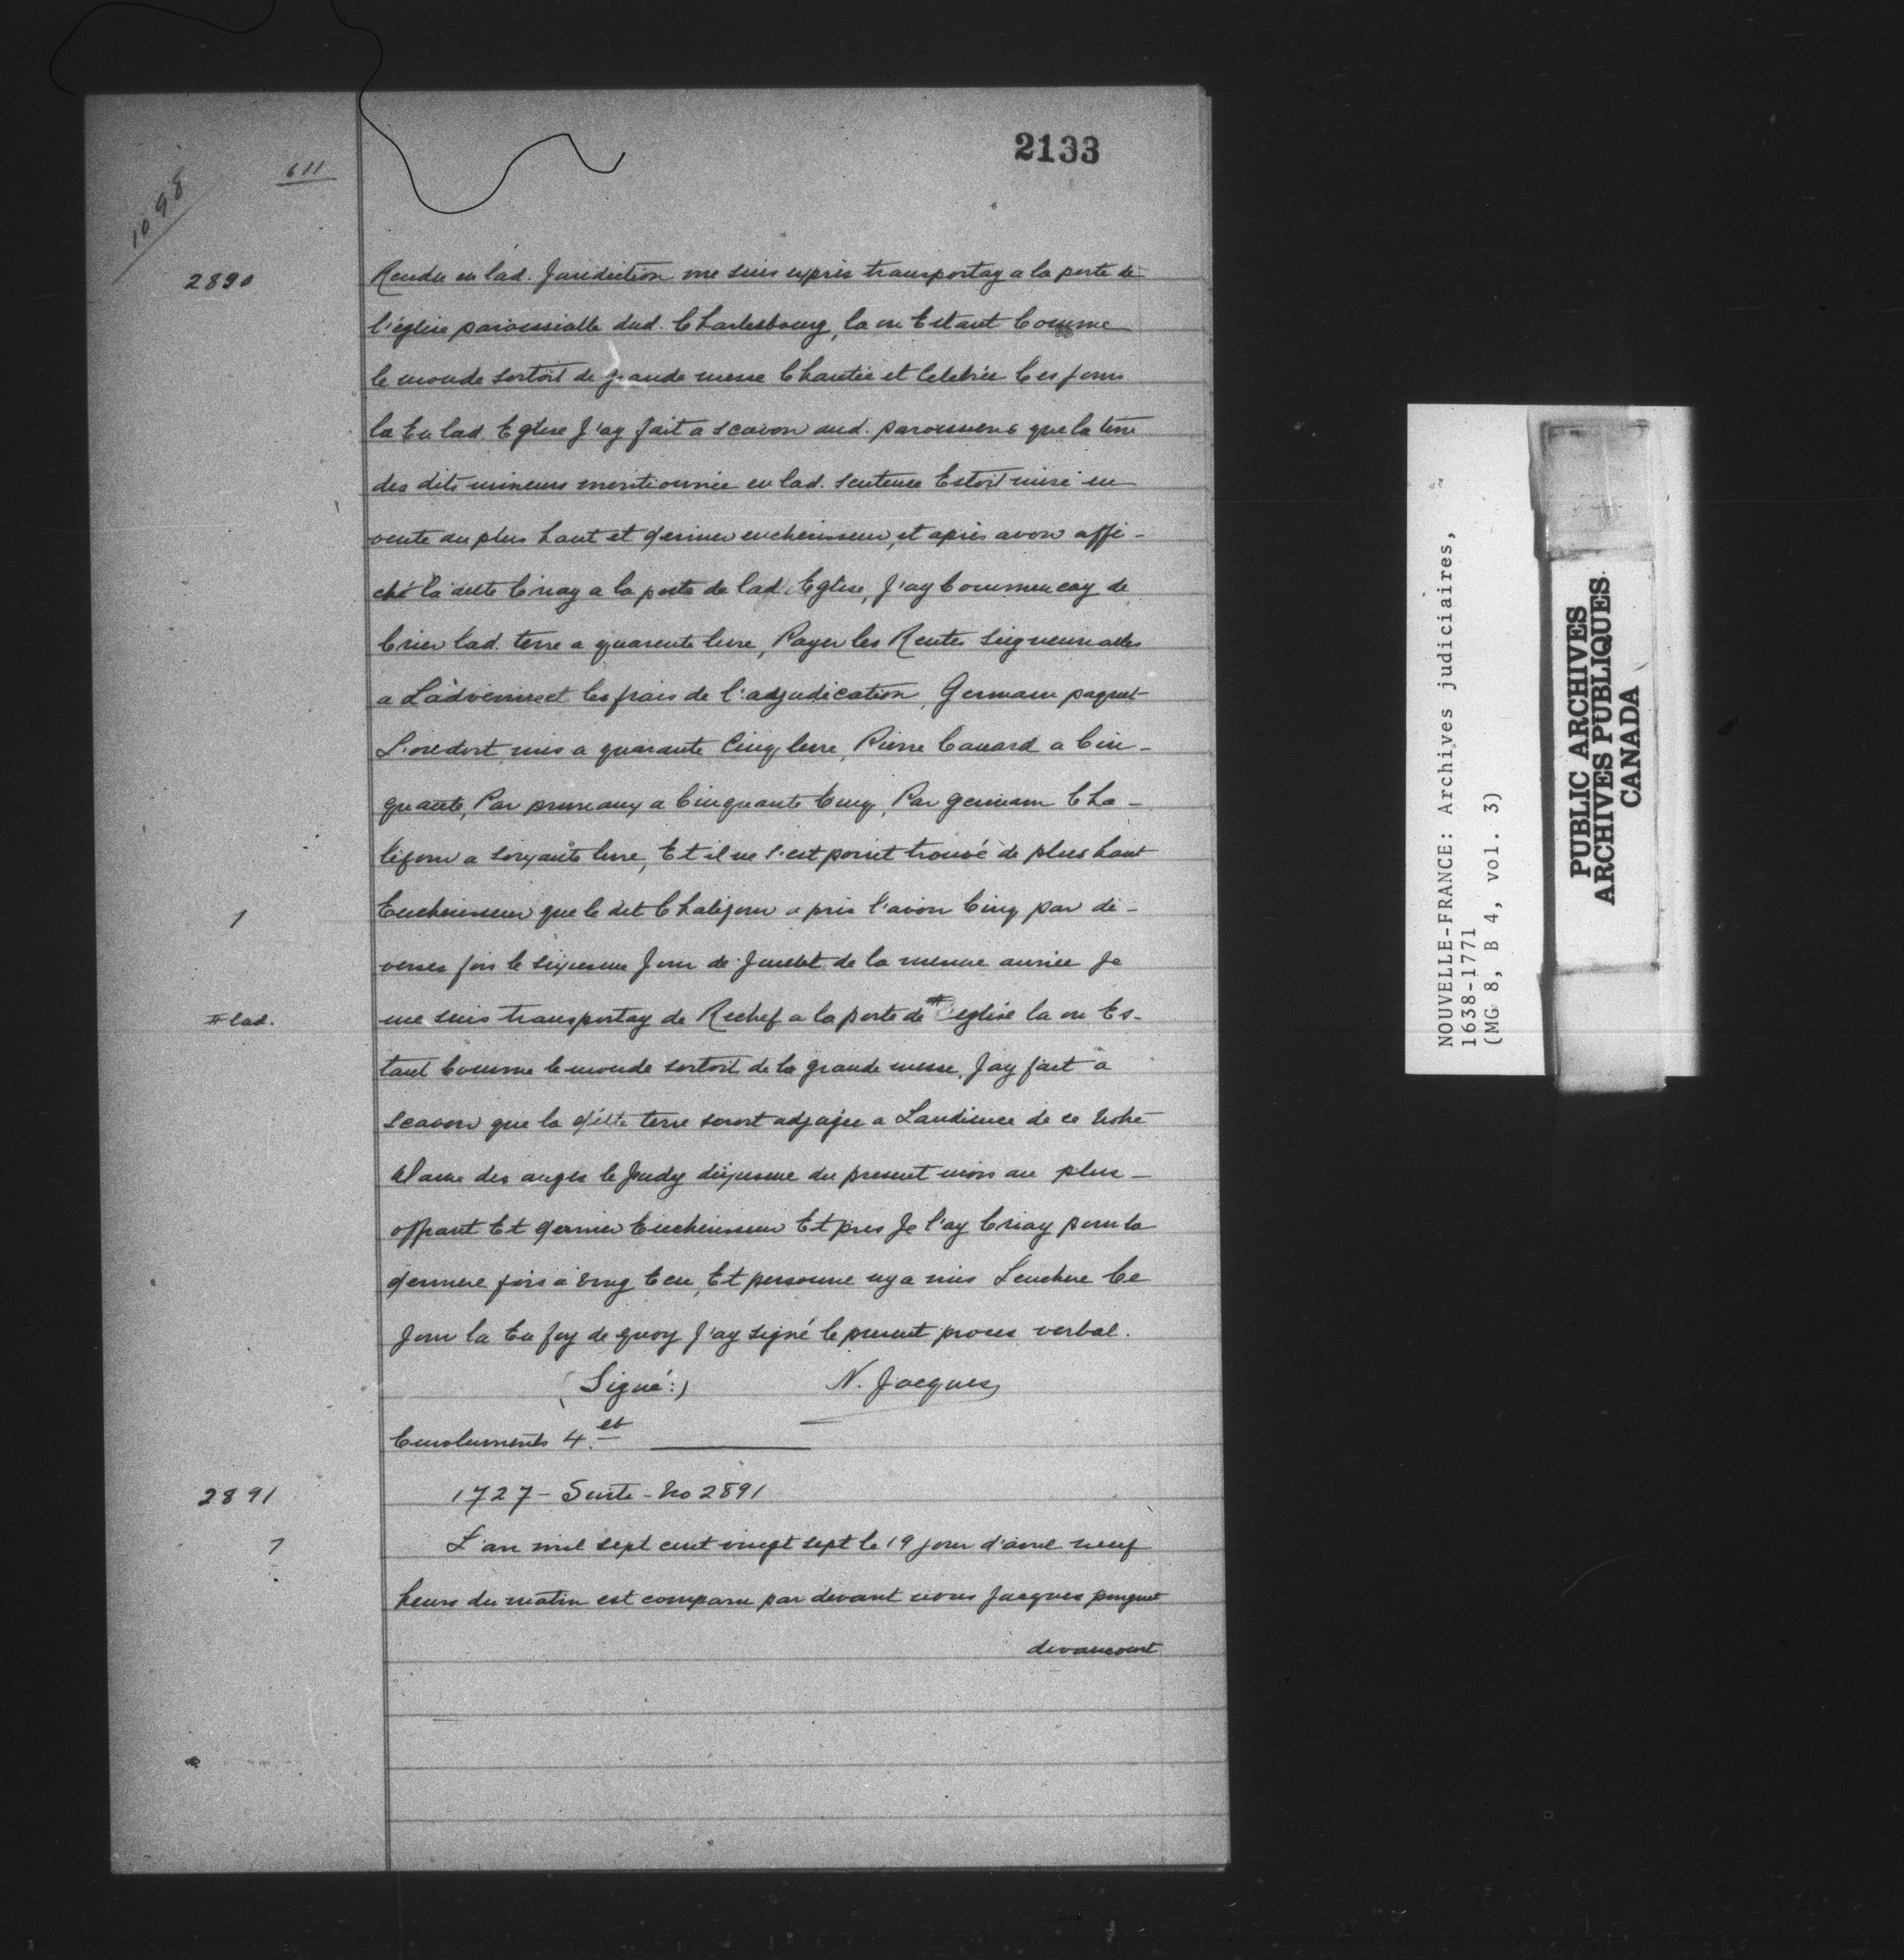 2133
611
1098
2890
Rendu en lad. Juridiction me suis exprès transportay a la porte de
l'église paroissialle dud. Charlesbourg, la ou Estant Comme
le monde sortoit de grande messe Chantée et Celebrée Ces jours
la En lad. Eglise J'ay fait a scavoir aud. paroissiens que la terre
des dits mineurs mentionnée en lad. sentence Estoit mise en
vente au plus haut et dernier encherisseur, et après avoir affi-
ché la ditte Criay a la porte de lad. Eglise, J'ay Commencay de
Crier lad. terre a quarente livre, Payer les Rentes Seigneurialles
a L'advenir et les frais de l'adjudication, Germain paquet
mis a quarante Cinq livre, Pierre Canard a Cin-
quante, Par pruneaux a Cinquante Cinq, Par germain Cha-
lifour a soixante livre, Et il ne s'est point trouvé de plus haut
1
Encherisseur que le dit Chalifour apris l'avoir Cinq par di-
verses fois le sixiesme Jour de Juillet de la mesme année Je
# lad.
me suis transportay de Rechef a la porte de # eglise la ou Es-
tant Comme le monde sortoit de la grande messe, Jay fait a
scavoir que la ditte terre seroit adjugée a Laudience de ce Notre
dame des anges le Jeudy dixiesme du present mois au plus
offrant Et dernier Encherisseur Et pres Je l'ay Criay pour la
derniere fois a vingt Ecu, Et personne ny a mis Lenchere Ce
Jour la En foy de quoy J'ay signé le present proces verbal.
(Signé:) N. Jacques
Emoluments 4.
2891
1727 - Suite - No 2891
?
L'an mil sept cent vingt sept le 19 jour d'avril neuf
heures du matin est comparu par devant nous Jacques pinguet
devancourt
NOUVELLE-FRANCE: Archives judiciaires,
1638-1771
(MG 8, B 4, vol. 3)
PUBLIC ARCHIVES
ARCHIVES PUBLIQUES
CANADA